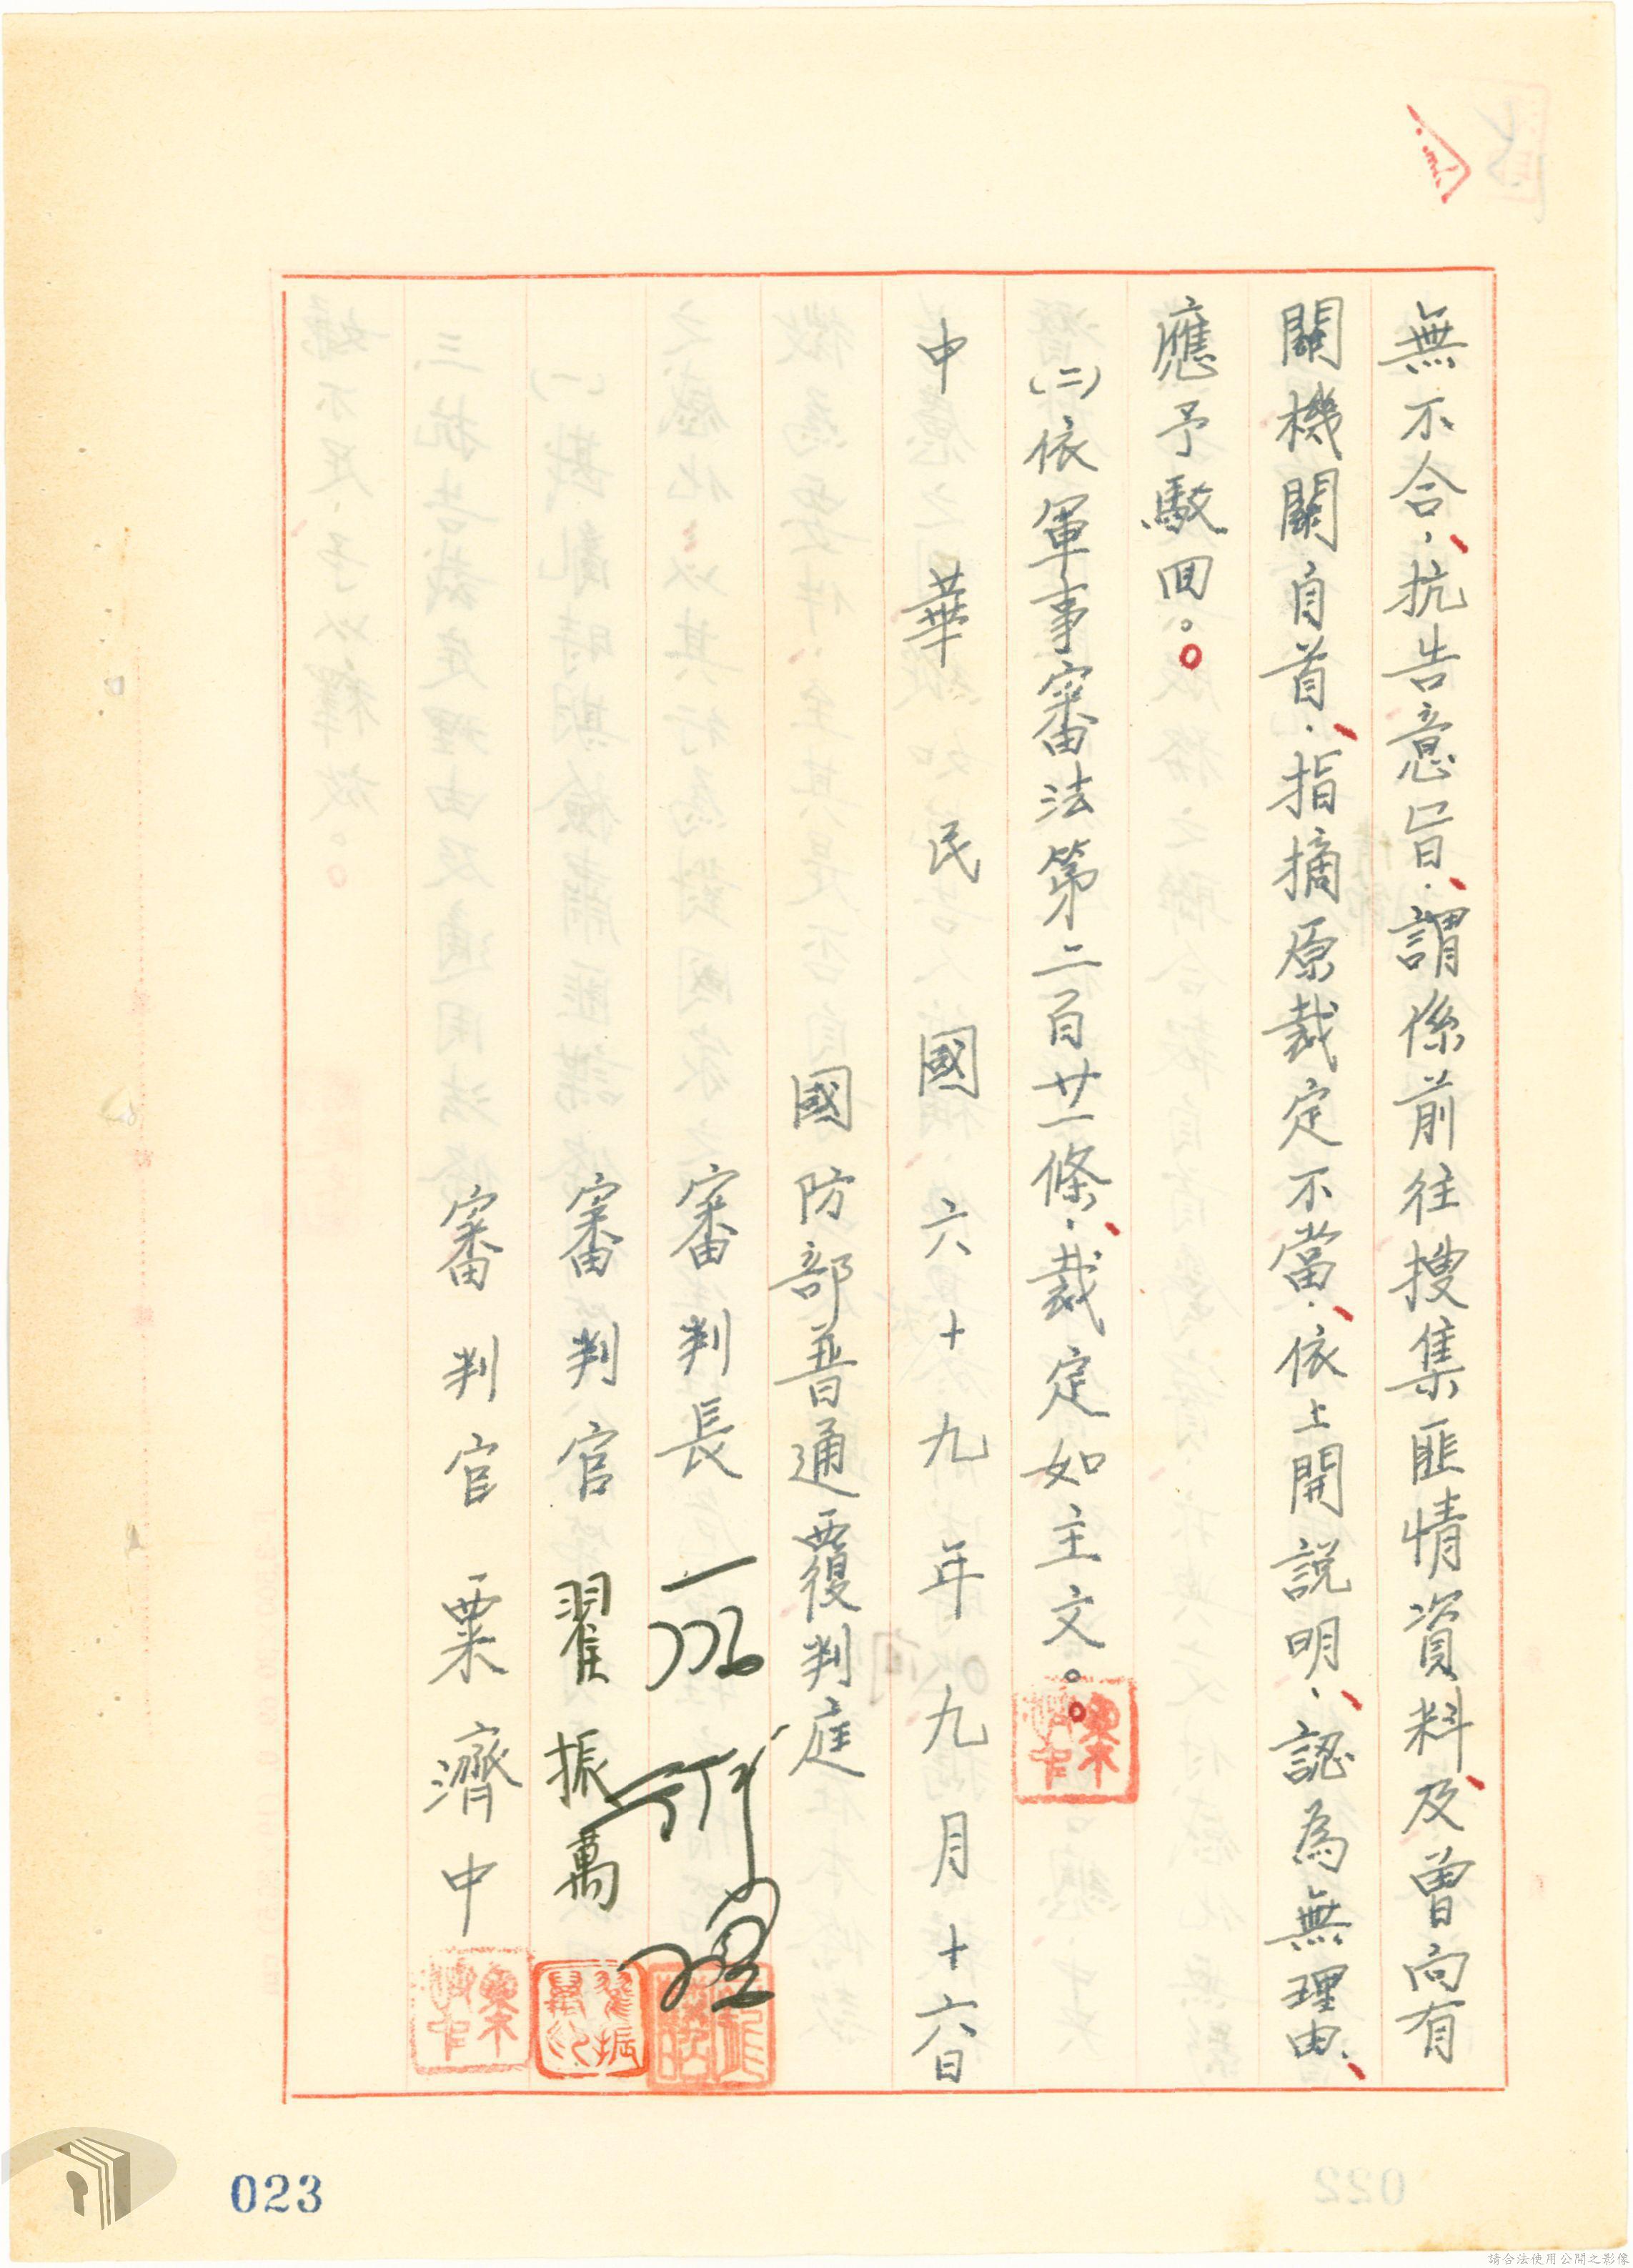 無不合，抗告意旨，謂係前往搜集匪情資料，及曾向有
關機關自首，指摘原裁定不當，依上開說明，認為無理由，
應予駁回。
㈡依軍事審法第二百廿一條，裁定如主文。
中華民國六十九年九月十六日
國防部普通覆判庭
審判長
審判官 翟振萬
審判官 粟濟中
023
請合法使用公開之影像